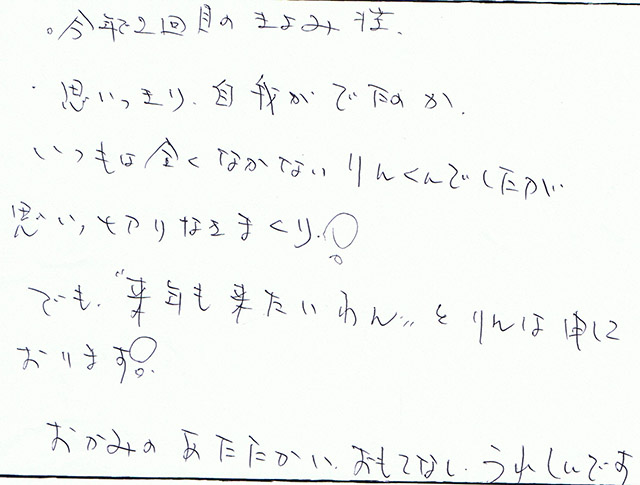 。今年で2回目のきよみ荘.
・思いっきり.自我がでたのか.
いつもは全くなかないりんくんでしたが
思いっきりなきまくり.
でも.“来年も来たいわん〃とりんは申して
おります。
おかみのあたたかい.おもてなし.うれしいです